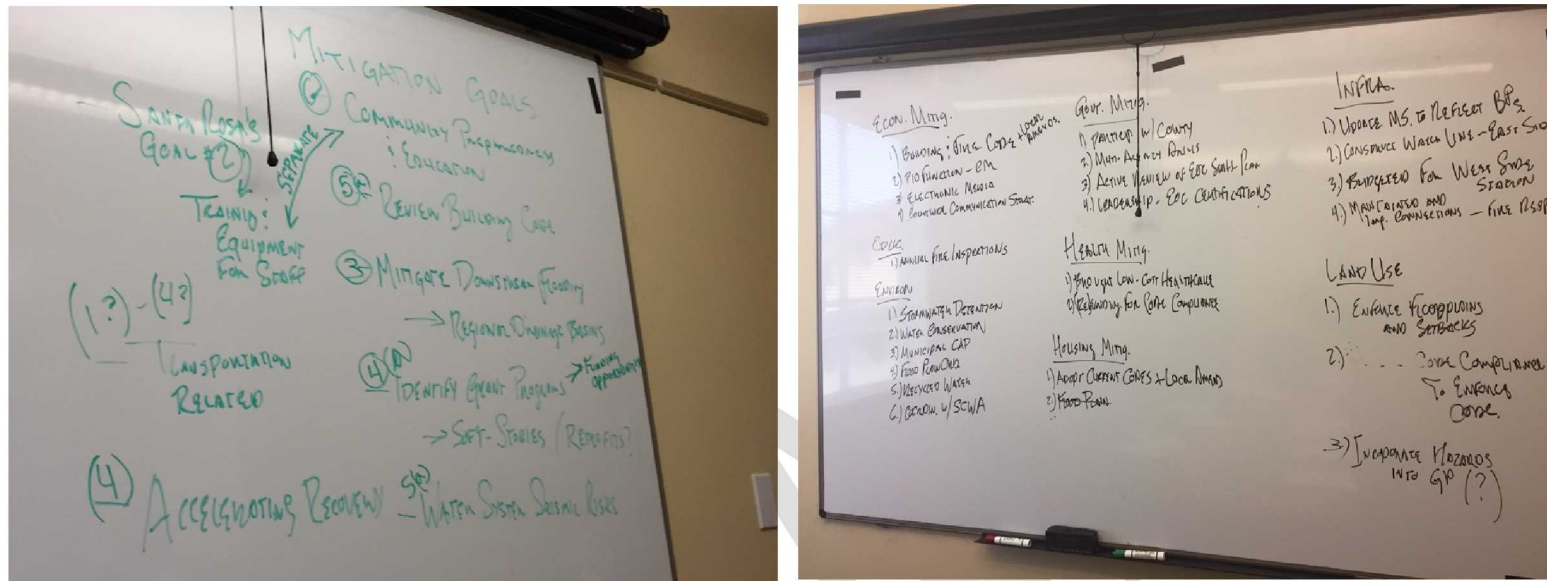 MITIGATION GOALS
COMMUNITY PREPAREDNESS
& EDUCATION
SANTA ROSA'S
GOAL #2
SEPARATE
TRAINING &
EQUIPMENT
FOR STAFF
5(a) REVIEW BUILDING CODE
3 MITIGATE DOWNSTREAM FLOODING
→ REGIONAL DRAINAGE BASINS
(1?) - (4?)
TRANSPORTATION
RELATED
4 IDENTIFY GRANT PROGRAMS → FUNDING
OPPORTUNITIES
→ SOFT-STORIES / RETROFITS?
(4) ACCELERATING RECOVERY
- WATER SYSTEM SEISMIC RISKS
ECON. MITIG.
1) BUILDING & FIRE CODE + LOCAL
AMENDS.
2) PIO FUNCTION - RM
3) ELECTRONIC MEDIA
4) COMMUNICATION STRAT.
EDUC.
1) ANNUAL FIRE INSPECTIONS
ENVIRON
1) STORMWATER DETENTION
2) WATER CONSERVATION
3) MUNICIPAL CAP
4) FOOD
5) RECYCLED WATER
6) W/ SCWA
GOVT. MITIG.
1) W/ COUNTY
2) MULTI AGENCY
3) ACTIVE REVIEW OF EOC STAFF PLAN
4.) LEADERSHIP - EOC CERTIFICATIONS
HEALTH MITIG.
1) BROUGHT LOW-COST HEALTHCARE
2) FOR CODE COMPLIANCE
HOUSING MITIG.
1) ADOPT CURRENT CODES + LOCAL AMEND
2)
INFRA.
1.) UPDATE M.S. TO REFLECT BP's.
2.) CONSTRUCT WATER LINE - EAST SIDE
3.) BUDGETED FOR WEST SIDE
STATION
4.) MAINTAINED AND
IMP. CONNECTIONS - FIRE RESP
LAND USE
1.) ENFORCE FLOODPLAINS
AND SETBACKS
2.) ... CODE COMPLIANCE
TO ENFORCE
CODE.
3.) INCORPORATE HAZARDS
INTO GP (?)